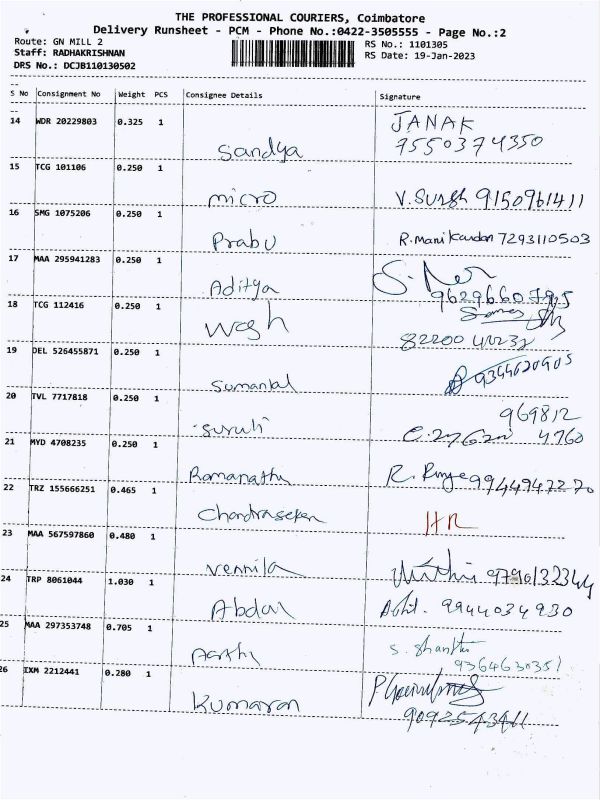 THE PROFESSIONAL COURIERS, Coimbatore
Delivery Runsheet - PCM - Phone No.:0422-3505555 - Page No.:2
Route: GN MILL 2
RS No.: 1101305
Staff: RADHAKRISHNAN
RS Date: 19-Jan-2023
DRS No.: DCJB110130502
S No Consignment No Weight PCS Consignee Details Signature
14 WDR 20229803 0.325 1 JANAK
Sandya 7550374350
15 TCG 101106 0.250 1
micro V. Suresh 9150961411
16 SMG 1075206 0.250 1
Prabu R. Manikandan 7293110503
17 MAA 295941283 0.250 1
Aditya 9629660795
18 TCG 112416 0.250 1
Wash
19 DEL 526455871 0.250 1
9344620905
20 TVL 7717818 0.250 1 969812
Suruli 4760
21 MYD 4708235 0.250 1
Ramanathn 9944947270
22 TRZ 155666251 0.465 1
Chandraseken HR
23 MAA 567597860 0.480 1
Vennila 9790132344
24 TRP 8061044 1.030 1
Abdul 9944034930
25 MAA 297353748 0.705 1 S. Shanthi
9364630351
26 IXM 2212441 0.280 1
Kumaran 9092543411